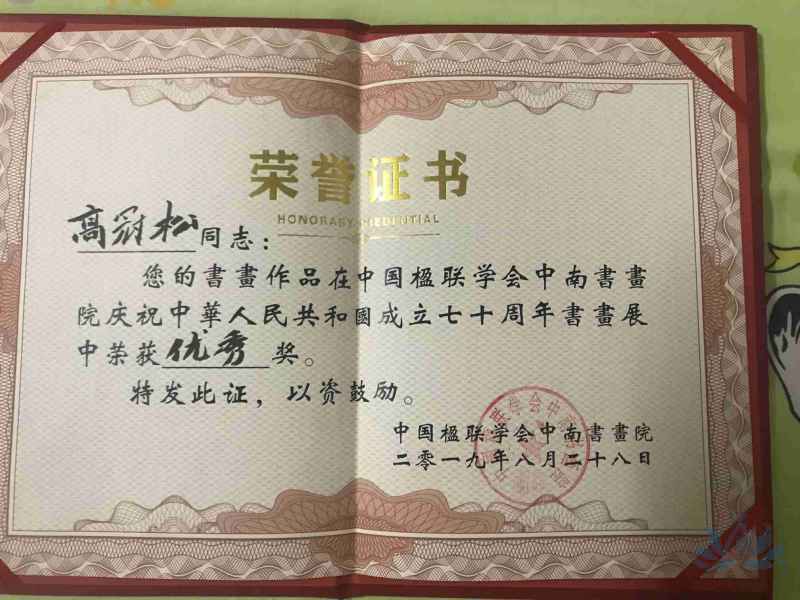 荣誉证书
HONORARY CREDENTIAL
高冠松同志：
您的書畫作品在中国楹联学会中南書畫
院庆祝中華人民共和國成立七十周年書畫展
中荣获优秀奖。
特发此证，以资鼓励。
中国楹联学会中南書畫院
二零一九年八月二十八日